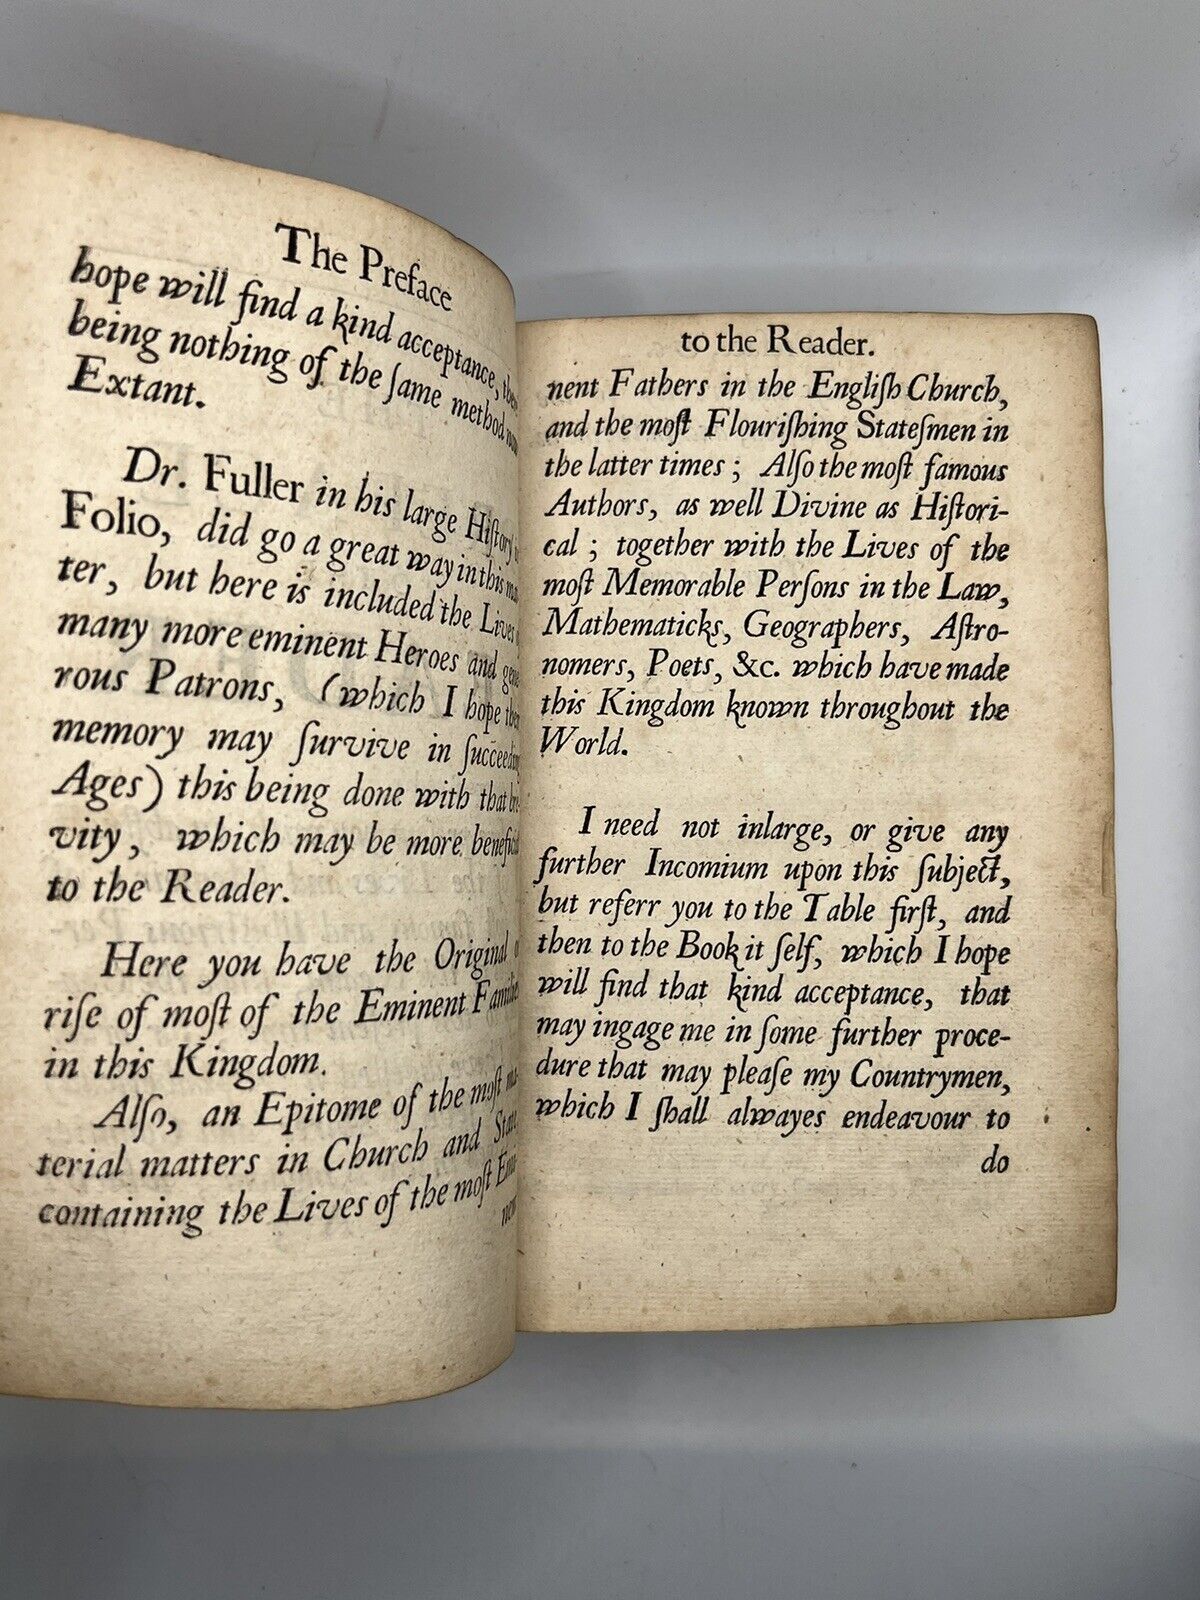 The Preface
hope will find a kind acceptance, there
being nothing of the ſame method now
Extant.
Dr. Fuller in his large Hiſtory in
Folio, did go a great way in this mat-
ter, but here is included the Lives of
many more eminent Heroes and gene-
rous Patrons, (which I hope their
memory may ſurvive in ſucceeding
Ages) this being done with that bre-
vity, which may be more beneficial
to the Reader.
Here you have the Original or
riſe of moſt of the Eminent Families
in this Kingdom.
Alſo, an Epitome of the moſt ma-
terial matters in Church and State,
containing the Lives of the moſt Emi-
nent
to the Reader.
nent Fathers in the Engliſh Church,
and the moſt Flouriſhing Stateſmen in
the latter times; Alſo the moſt famous
Authors, as well Divine as Hiſtori-
cal; together with the Lives of the
moſt Memorable Perſons in the Law,
Mathematicks, Geographers, Aſtro-
nomers, Poets, &c. which have made
this Kingdom known throughout the
World.
I need not inlarge, or give any
further Incomium upon this ſubject,
but referr you to the Table firſt, and
then to the Book it ſelf, which I hope
will find that kind acceptance, that
may ingage me in ſome further proce-
dure that may pleaſe my Countrymen,
which I ſhall alwayes endeavour to
do